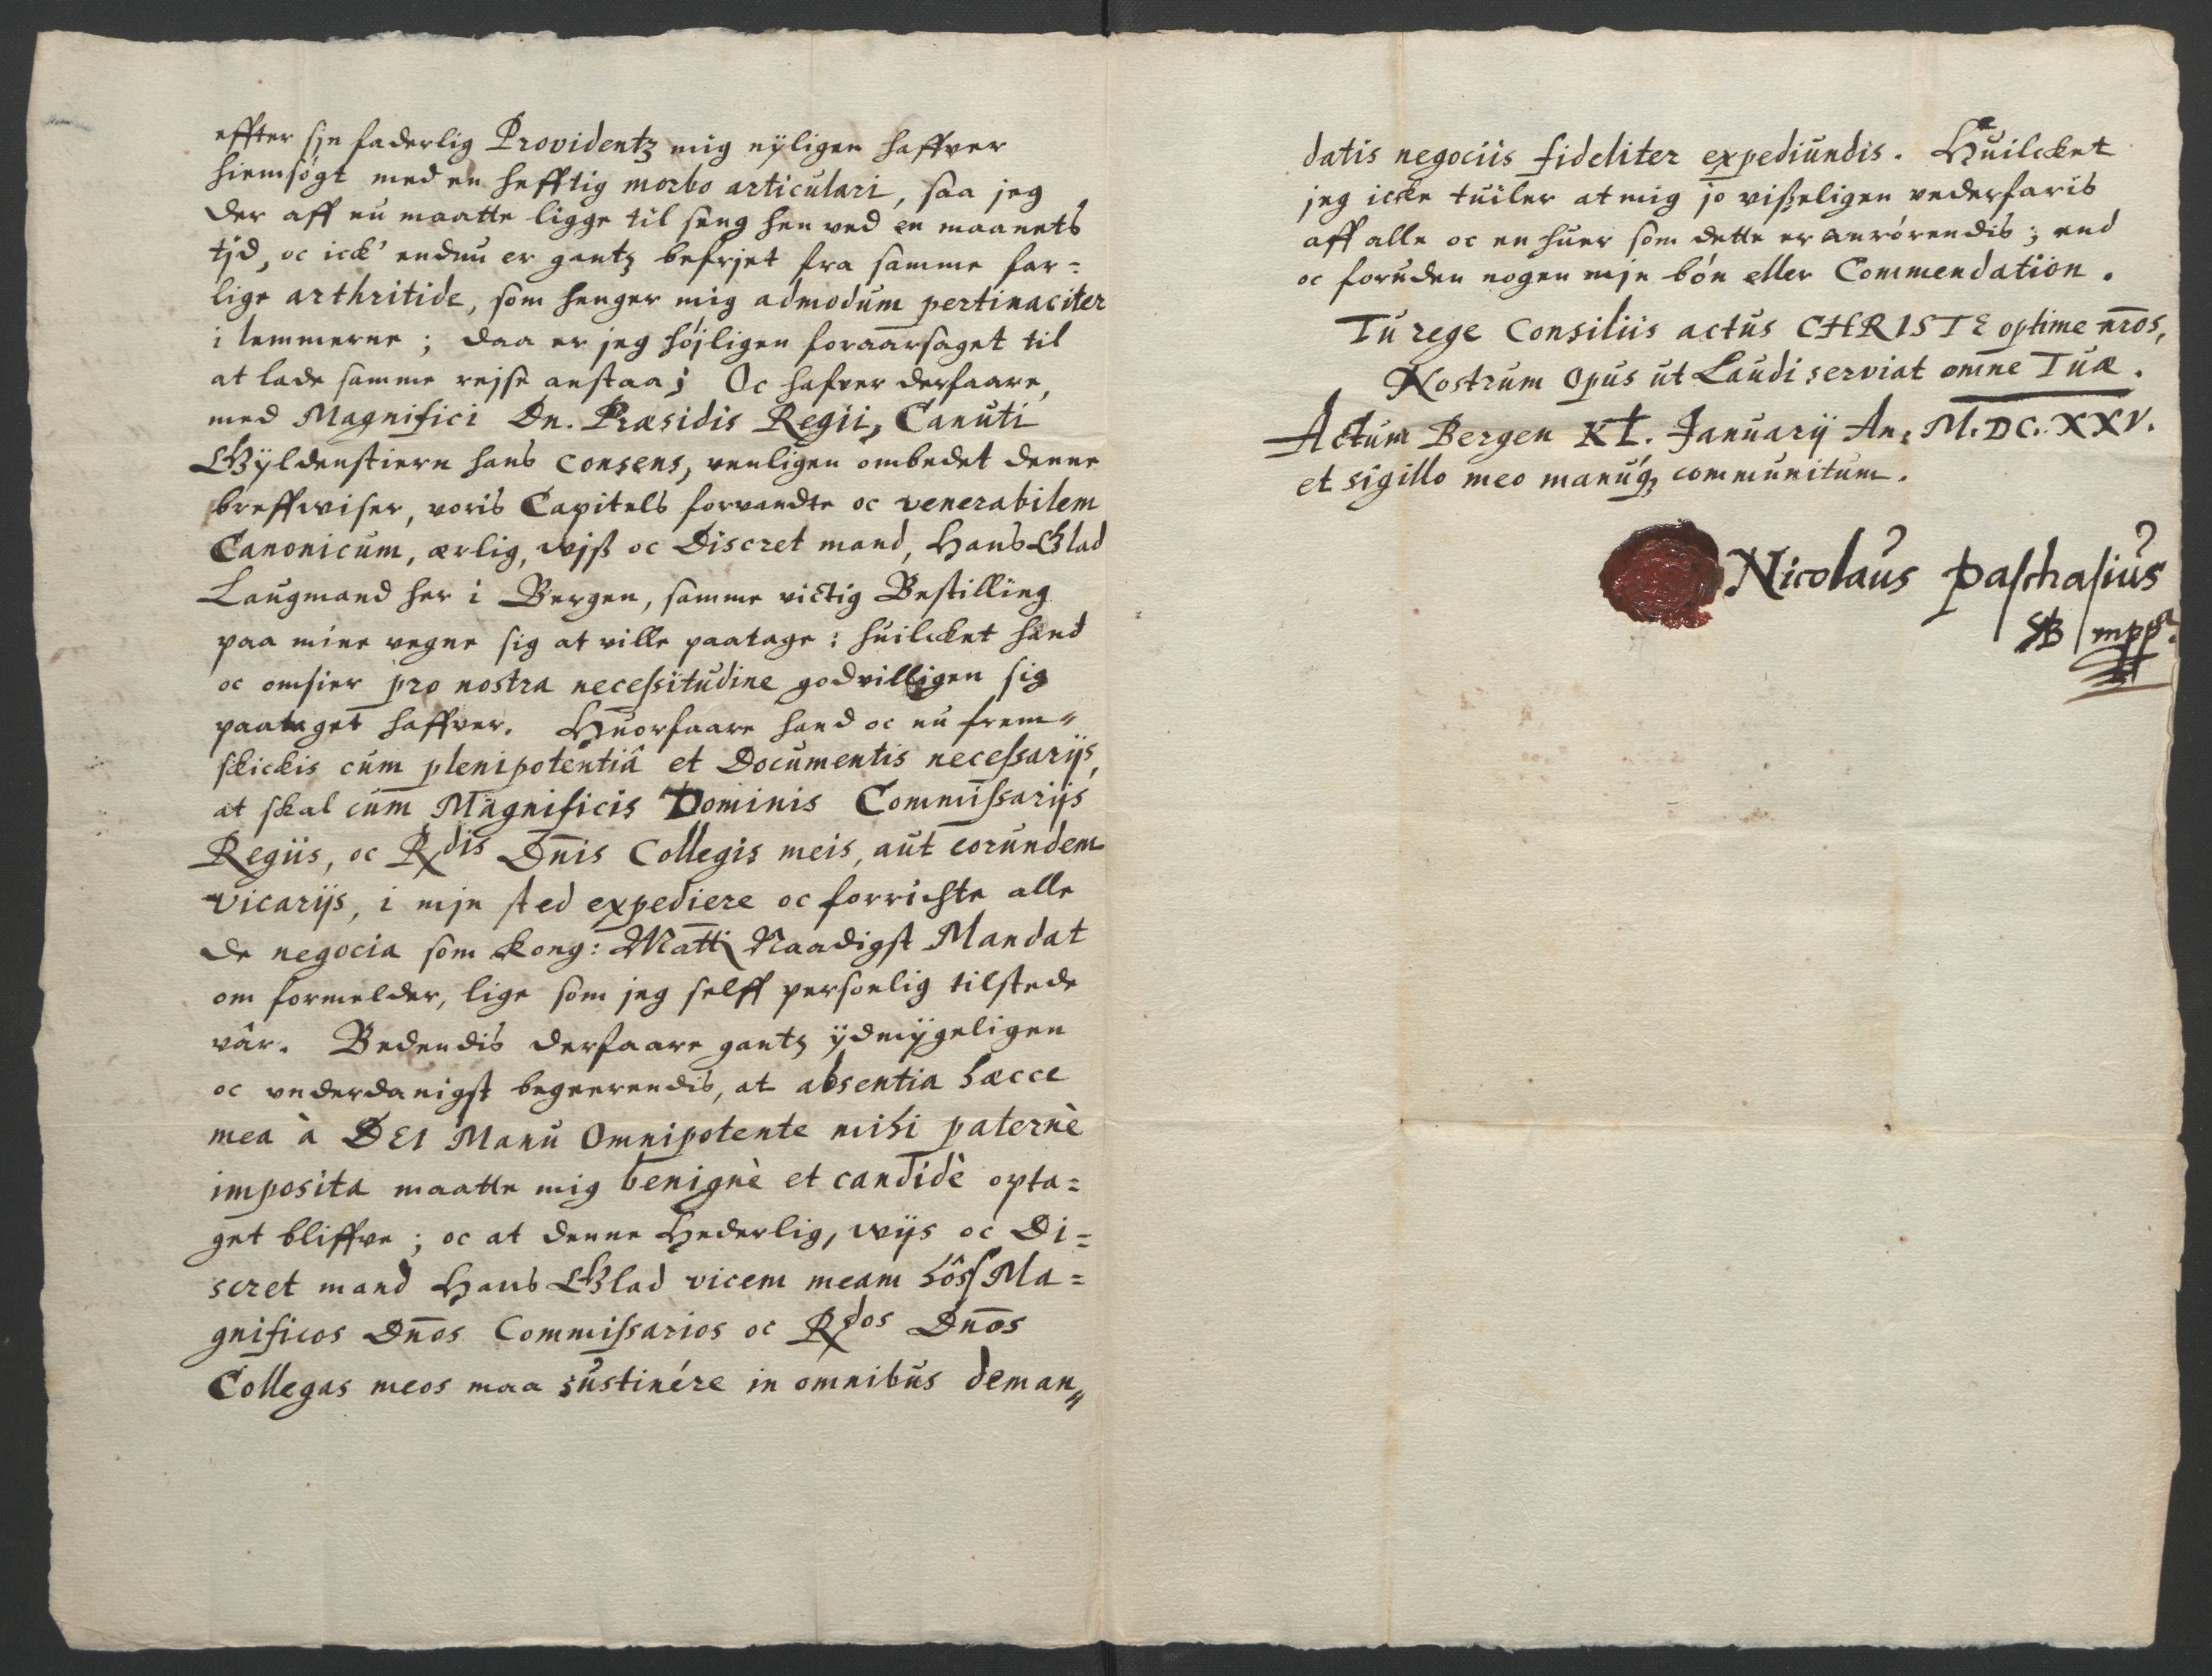 effter sin faderlig Providentz mig nÿligen haffver
hiemsøgt med en hefftig morbo articulari, saa jeg
der aff nu maatte ligge til seng hen ved en maanets
tjd, oc ick' endnu er gantz befrjet fra samme far=
lige arthritide, som henger mig admodum pertinaciter
i lemmerne; daa er jeg højligen foraarsaget til
at lade samme rejse anstaa; Oc hafver derfaare,
med Magnifici Dn. Præsidis Regii, Canuti
Gÿldenstiern hans consens, venligen ombedet denne
breffwiser, voris Capitels forvandte oc venerabilem
Canonicum, ærlig, wjß oc Discret mand, Hans Glad
Laugmand her i Bergen, samme victig Bestilling
paa mine vegne sig at ville paatage: huilcket hand
oc omsier pro nostra necessitudine godvilligen sig
paataget haffver. Huorfaare hand oc nu frem=
skickis cum plenipotentiâ et Documentis necessarijs,
at skal cum Magnificis Dominis Commissarijs
Regiis, oc Rdis Dn̄is Collegis meis, aut eorundem
vicarijs, i mjn sted expediere oc forrichte alle
de negocia som Kong: Matt. Naadigst Mandat
om formelder, lige som jeg selff personlig tilstede
vâr. Bedendis derfaare gantz ÿdmÿgeligen
oc vnderdanigst begeerendis, at absentia hæcce
mea à DEI Manu Omnipotente mihi paternè
imposita maatte mig benignè et candidè opta=
get bliffve; oc at denne Hederlig, wijs oc Di=
scret mand Hans Glad vicem meam hôss Ma=
gnificos Dn̄os Commissarios oc Rdos Dn̄os
Collegas meos maa sustinére in omnibus deman=
datis negociis fideliter expediundis. Huilcket
jeg icke tuiler at mig jo visseligen vederfaris
aff alle oc en huer som dette er anrørendis; end
oc foruden nogen mjn bón eller Commendation.
Tu rege Consiliis actus CHRISTE optime nr̄os,
Nostrum Opus ut Laudi serviat omn̄e Tuæ.
Actum Bergen Kł. Januarij An: M.DC.XXV.
et sigillo meo manúq; communitum.
Nicolaus Paschasius
mpp.